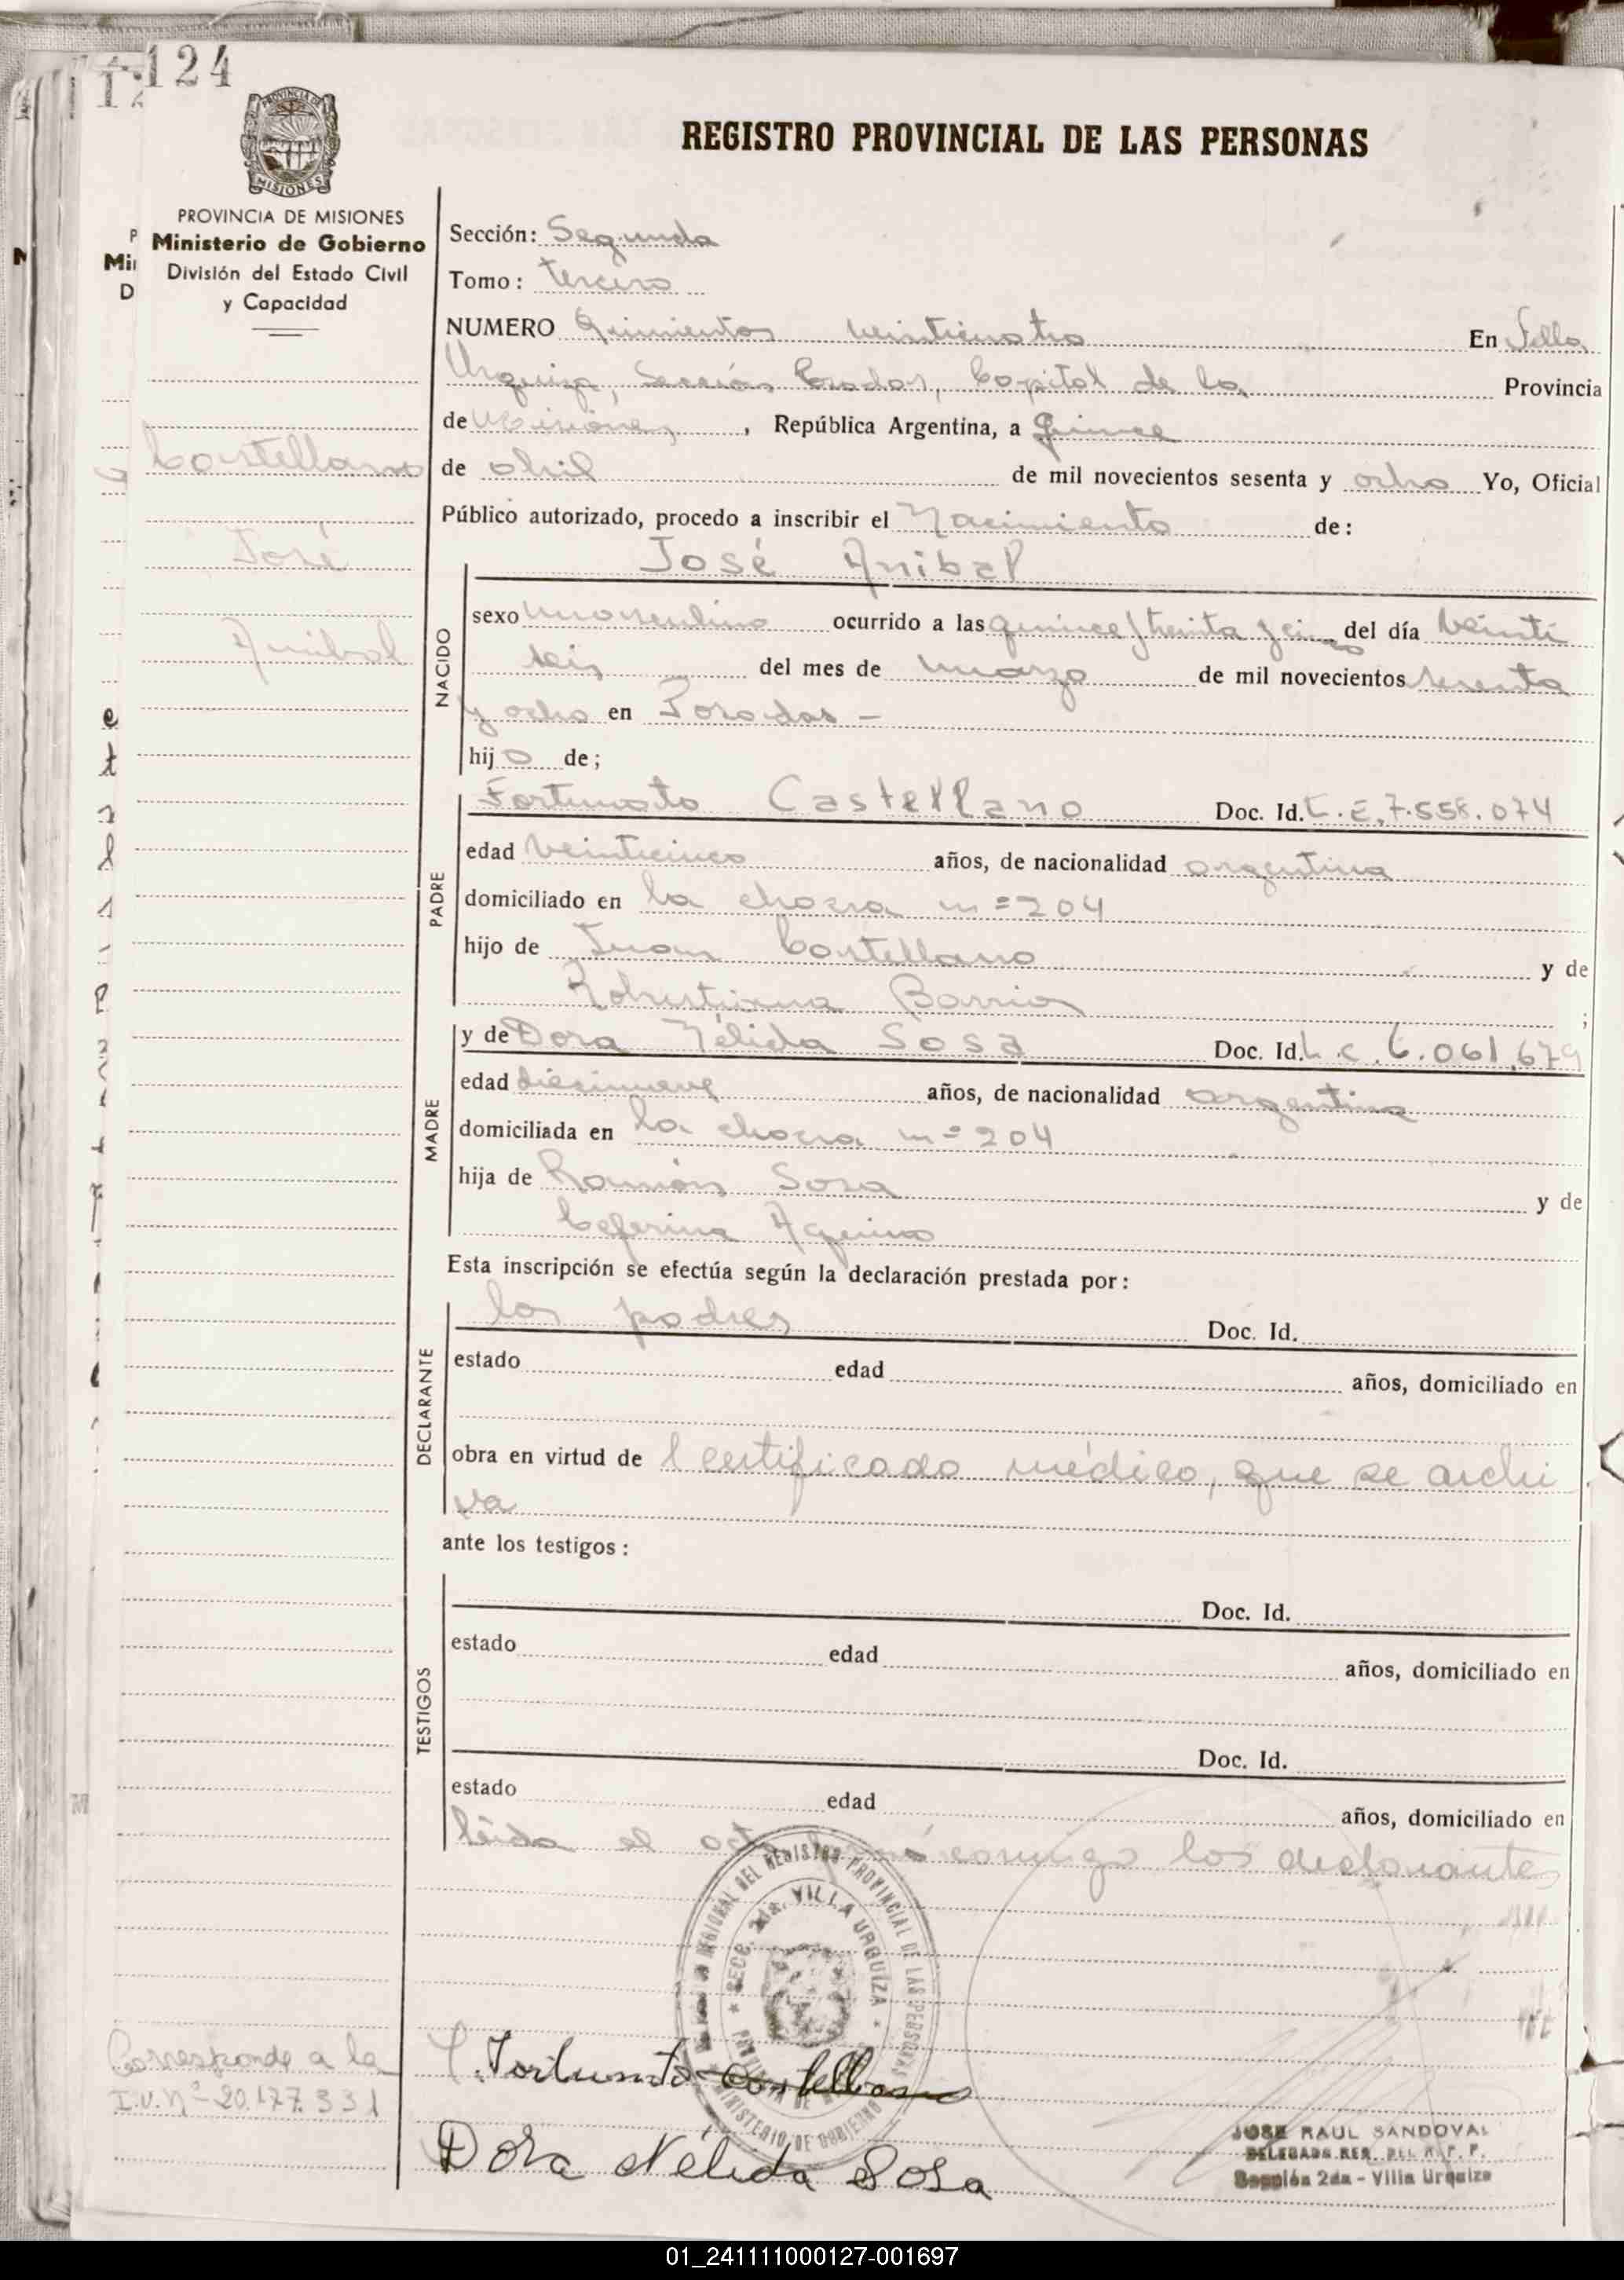 124
REGISTRO PROVINCIAL DE LAS PERSONAS
PROVINCIA DE MISIONES
Ministerio de Gobierno
División del Estado Civil
y Capacidad
Castellano
José
Anibal
Sección: Segunda
Tomo: tercero
NUMERO Quinientos veinticuatro En Villa
Urquiza, Sección Posadas, Capital de la Provincia
de Misiones, , República Argentina, a quince
de abril de mil novecientos sesenta y ocho Yo, Oficial
Público autorizado, procedo a inscribir el Nacimiento de:
José Anibal
NACIDO
sexo masculino ocurrido a las quince y treinta y cinco del día veinti
seis del mes de marzo de mil novecientos sesenta
y ocho en Posadas -
hijo de;
PADRE
Fortunato Castellano Doc. Id. L.E. 7.558.074
edad veinticinco años, de nacionalidad argentina
domiciliado en la chacra nº 204
hijo de Juan Castellano y de
Robustiana Barrios ;
MADRE
y de Dora Nélida Sosa Doc. Id. L.C. 6.061.679
edad diecinueve años, de nacionalidad argentina
domiciliada en la chacra nº 204
hija de Ramón Sosa y de
Ceferina Aquino
Esta inscripción se efectúa según la declaración prestada por:
DECLARANTE
los padres Doc. Id.
estado edad años, domiciliado en
obra en virtud de l certificado médico, que se archi
va
ante los testigos:
TESTIGOS
Doc. Id.
estado edad años, domiciliado en
Doc. Id.
estado edad años, domiciliado en
leída el acta conmigo los declarantes
REGIONAL DEL REGISTRO PROVINCIAL DE LAS PERSONAS
SECC. 2da. VILLA URQUIZA
MINISTERIO DE GOBIERNO
Corresponde a la
I.U. Nº 20.177.331
Fortunato Castellano
Dora Nélida Sosa
JOSE RAUL SANDOVAL
DELEGADO REG. DEL R. P. P.
Sección 2da - Villa Urquiza
01_241111000127-001697